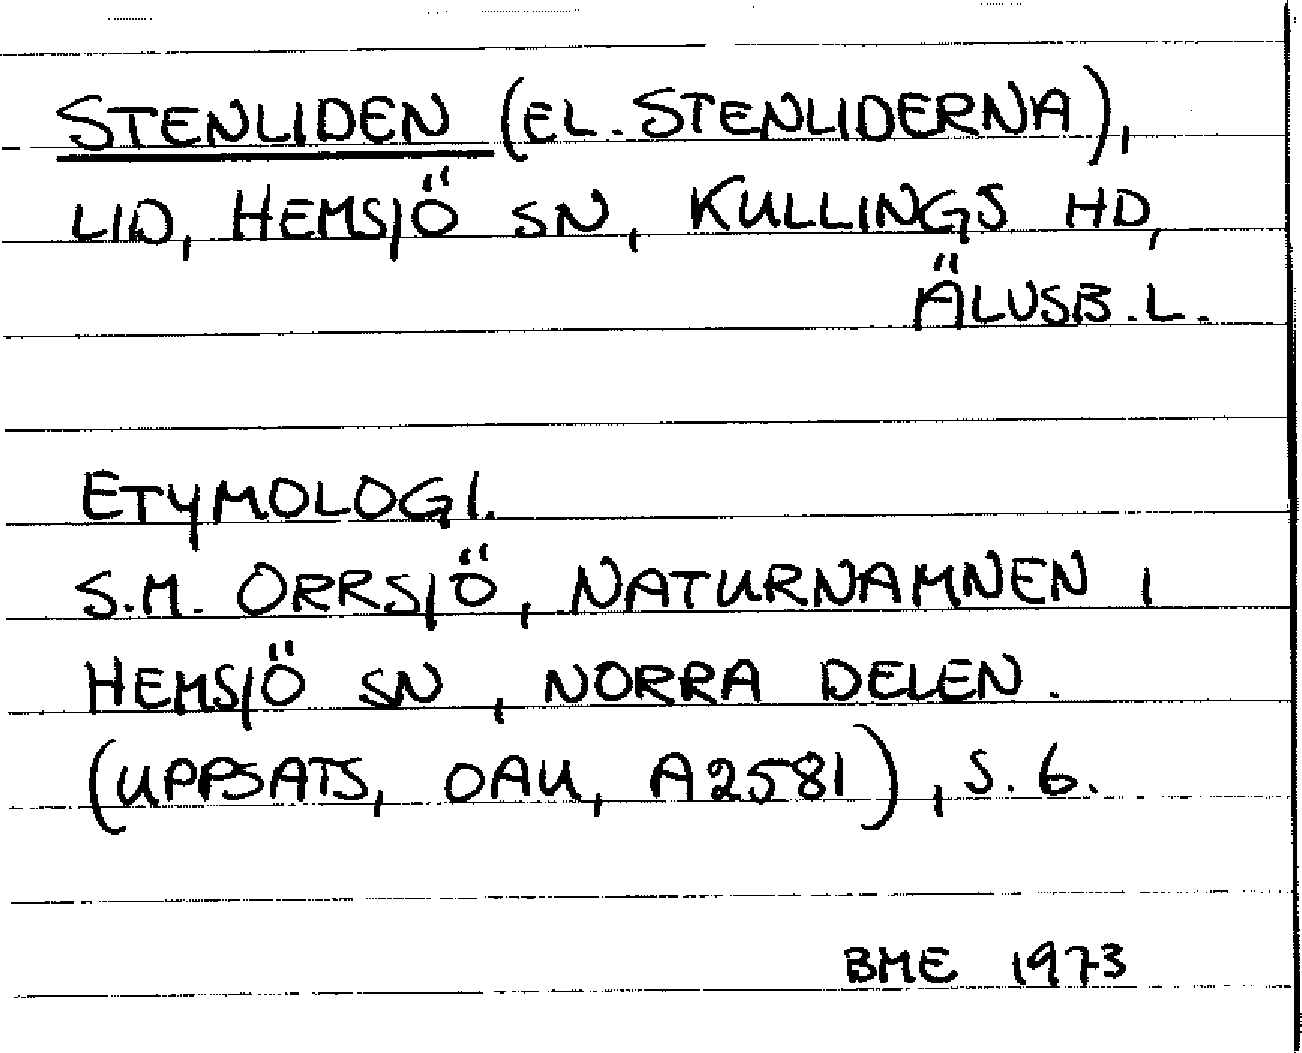 STENLIDEN (EL. STENLIDERNA),
LID, HEMSJÖ SN, KULLINGS HD,
ÄLVSB. L.
ETYMOLOGI.
S.M. ORRSJÖ, NATURNAMNEN I
HEMSJÖ SN, NORRA DELEN.
(UPPSATS, OAU, A2581), S. 6.
BME 1973